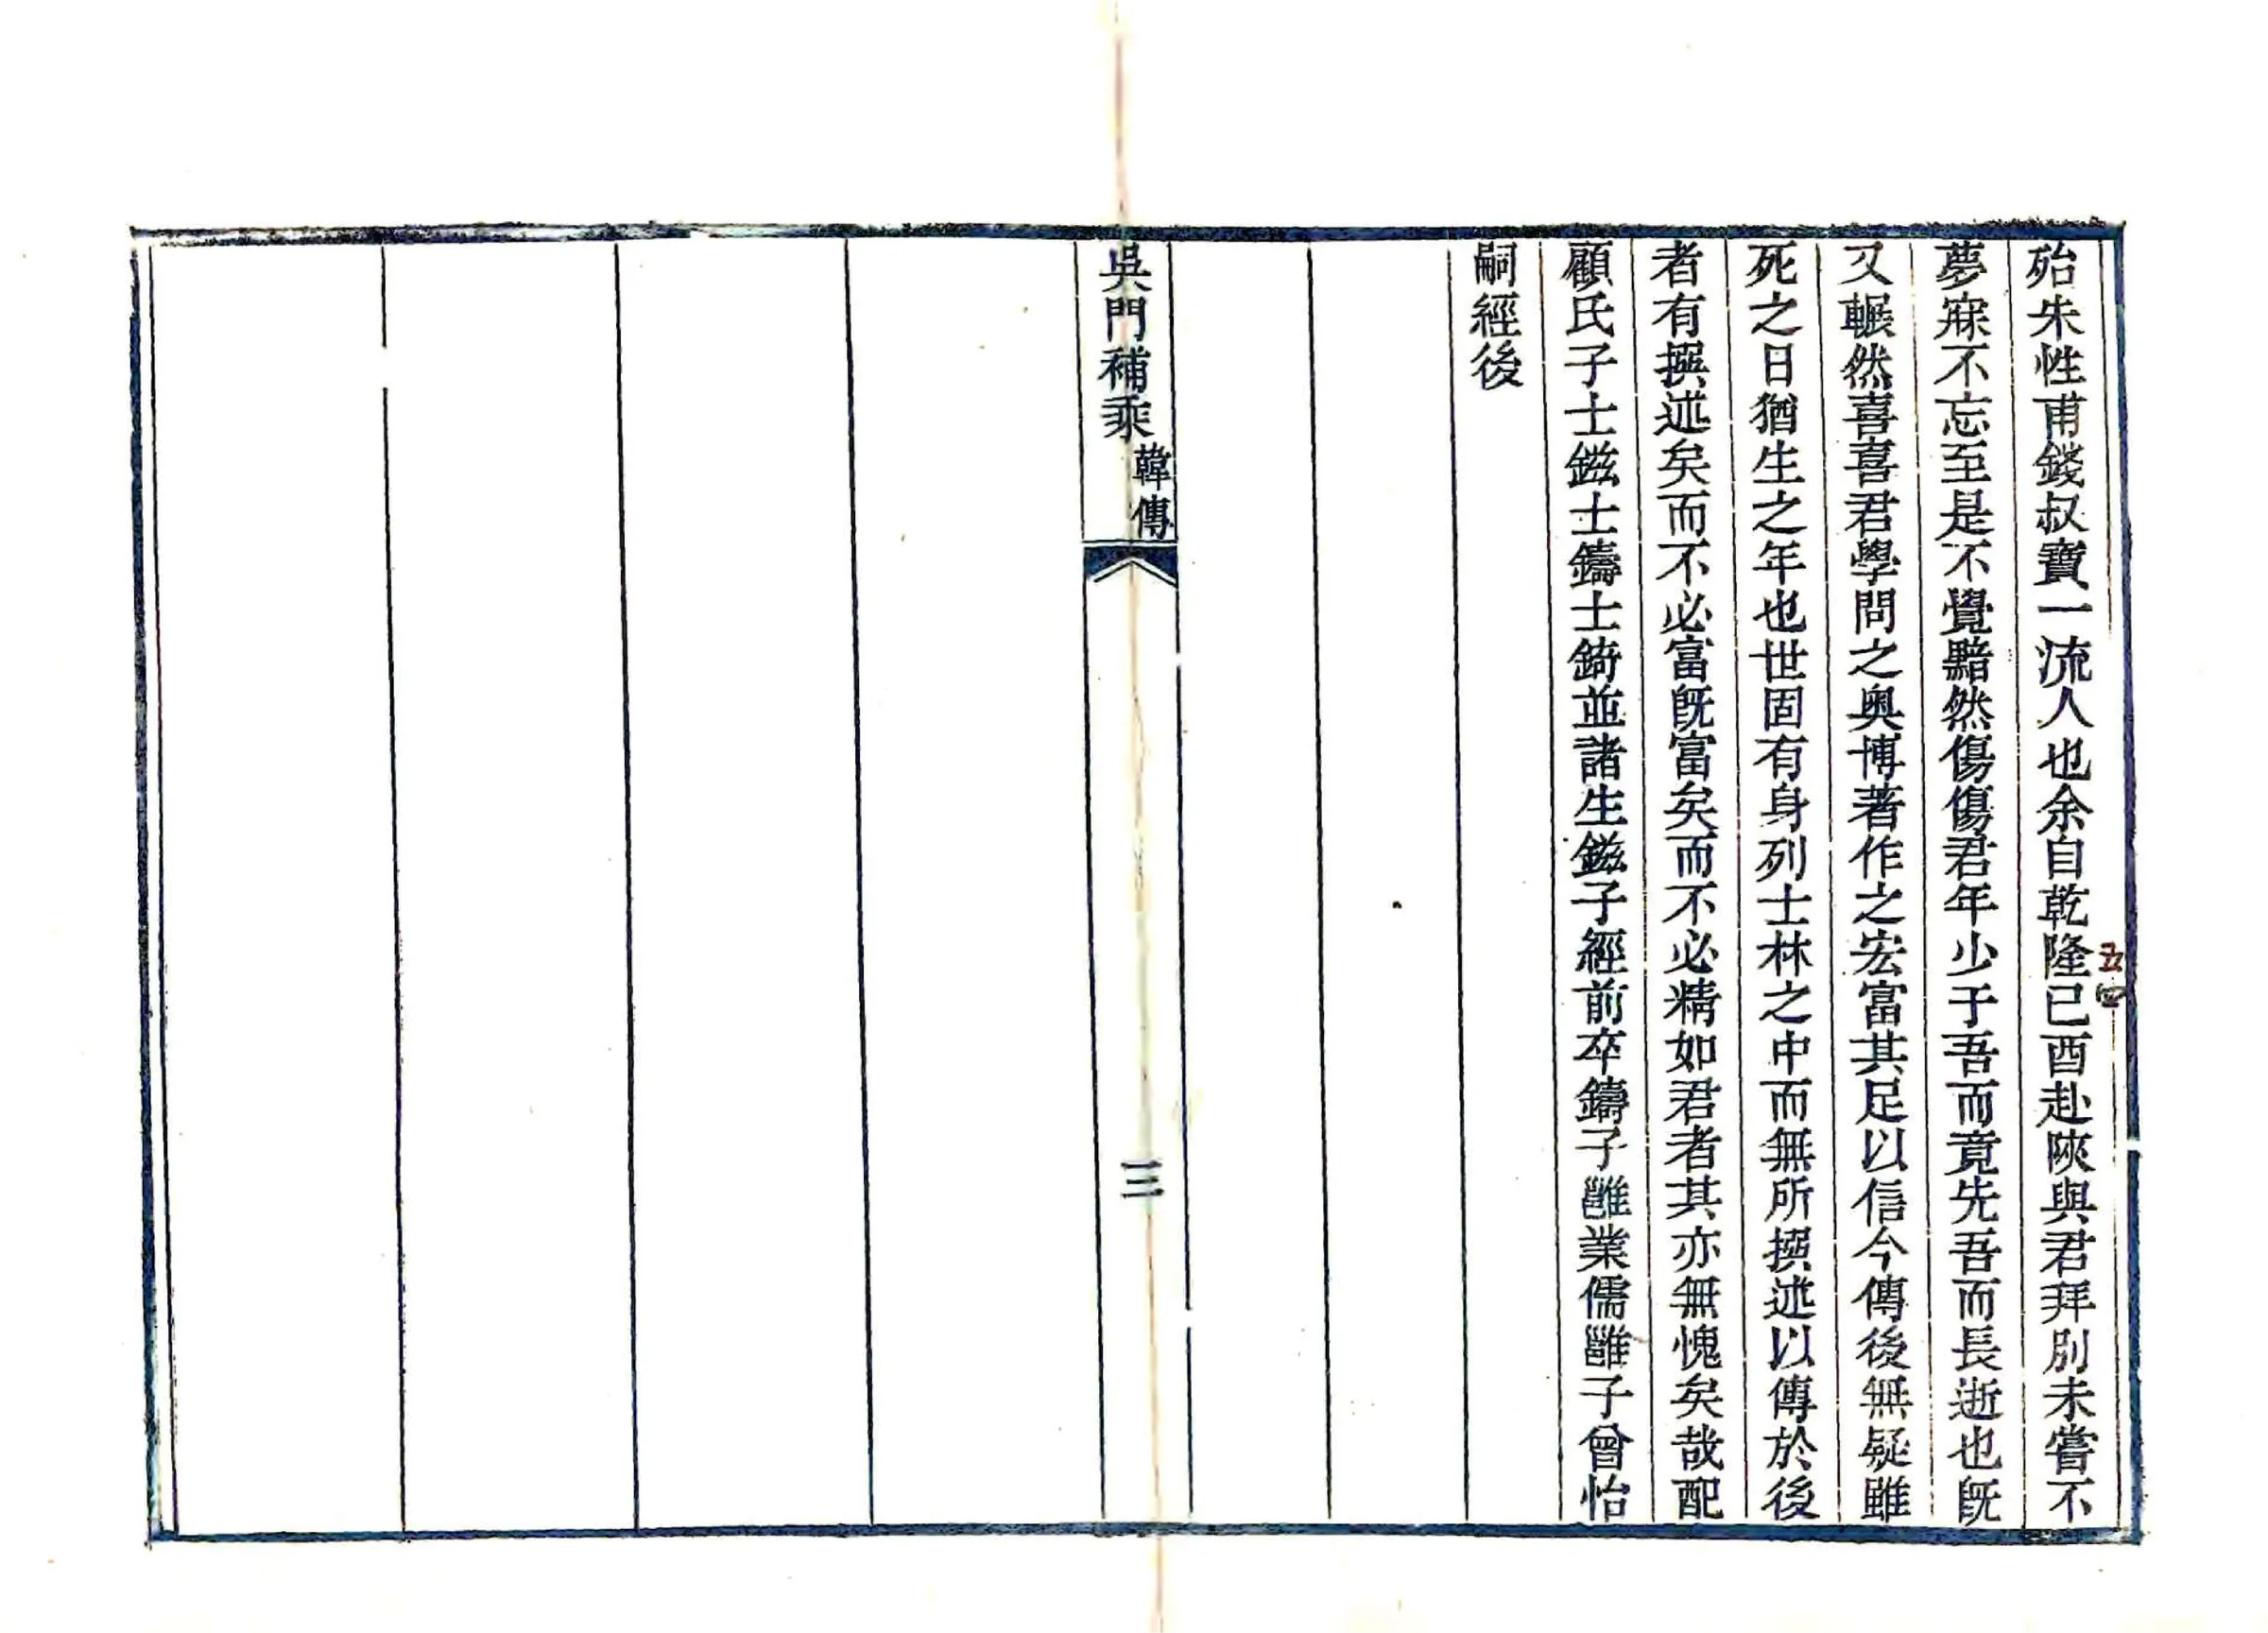 殆朱性甫錢叔寶一流人也余自乾隆己酉赴陝與君拜別未嘗不
夢寐不忘至是不覺黯然傷傷君年少于吾而竟先吾而長逝也旣
又囅然喜喜君學問之奧博著作之宏富其足以信今傳後無疑雖
死之日猶生之年也世固有身列士林之中而無所撰述以傳於後
者有撰述矣而不必富旣富矣而不必精如君者其亦無愧矣哉配
顧氏子士鎡士鑄士錡並諸生鎡子經前卒鑄子雝業儒雝子曾怡
嗣經後
吳門補乘
韓傳
三
五四